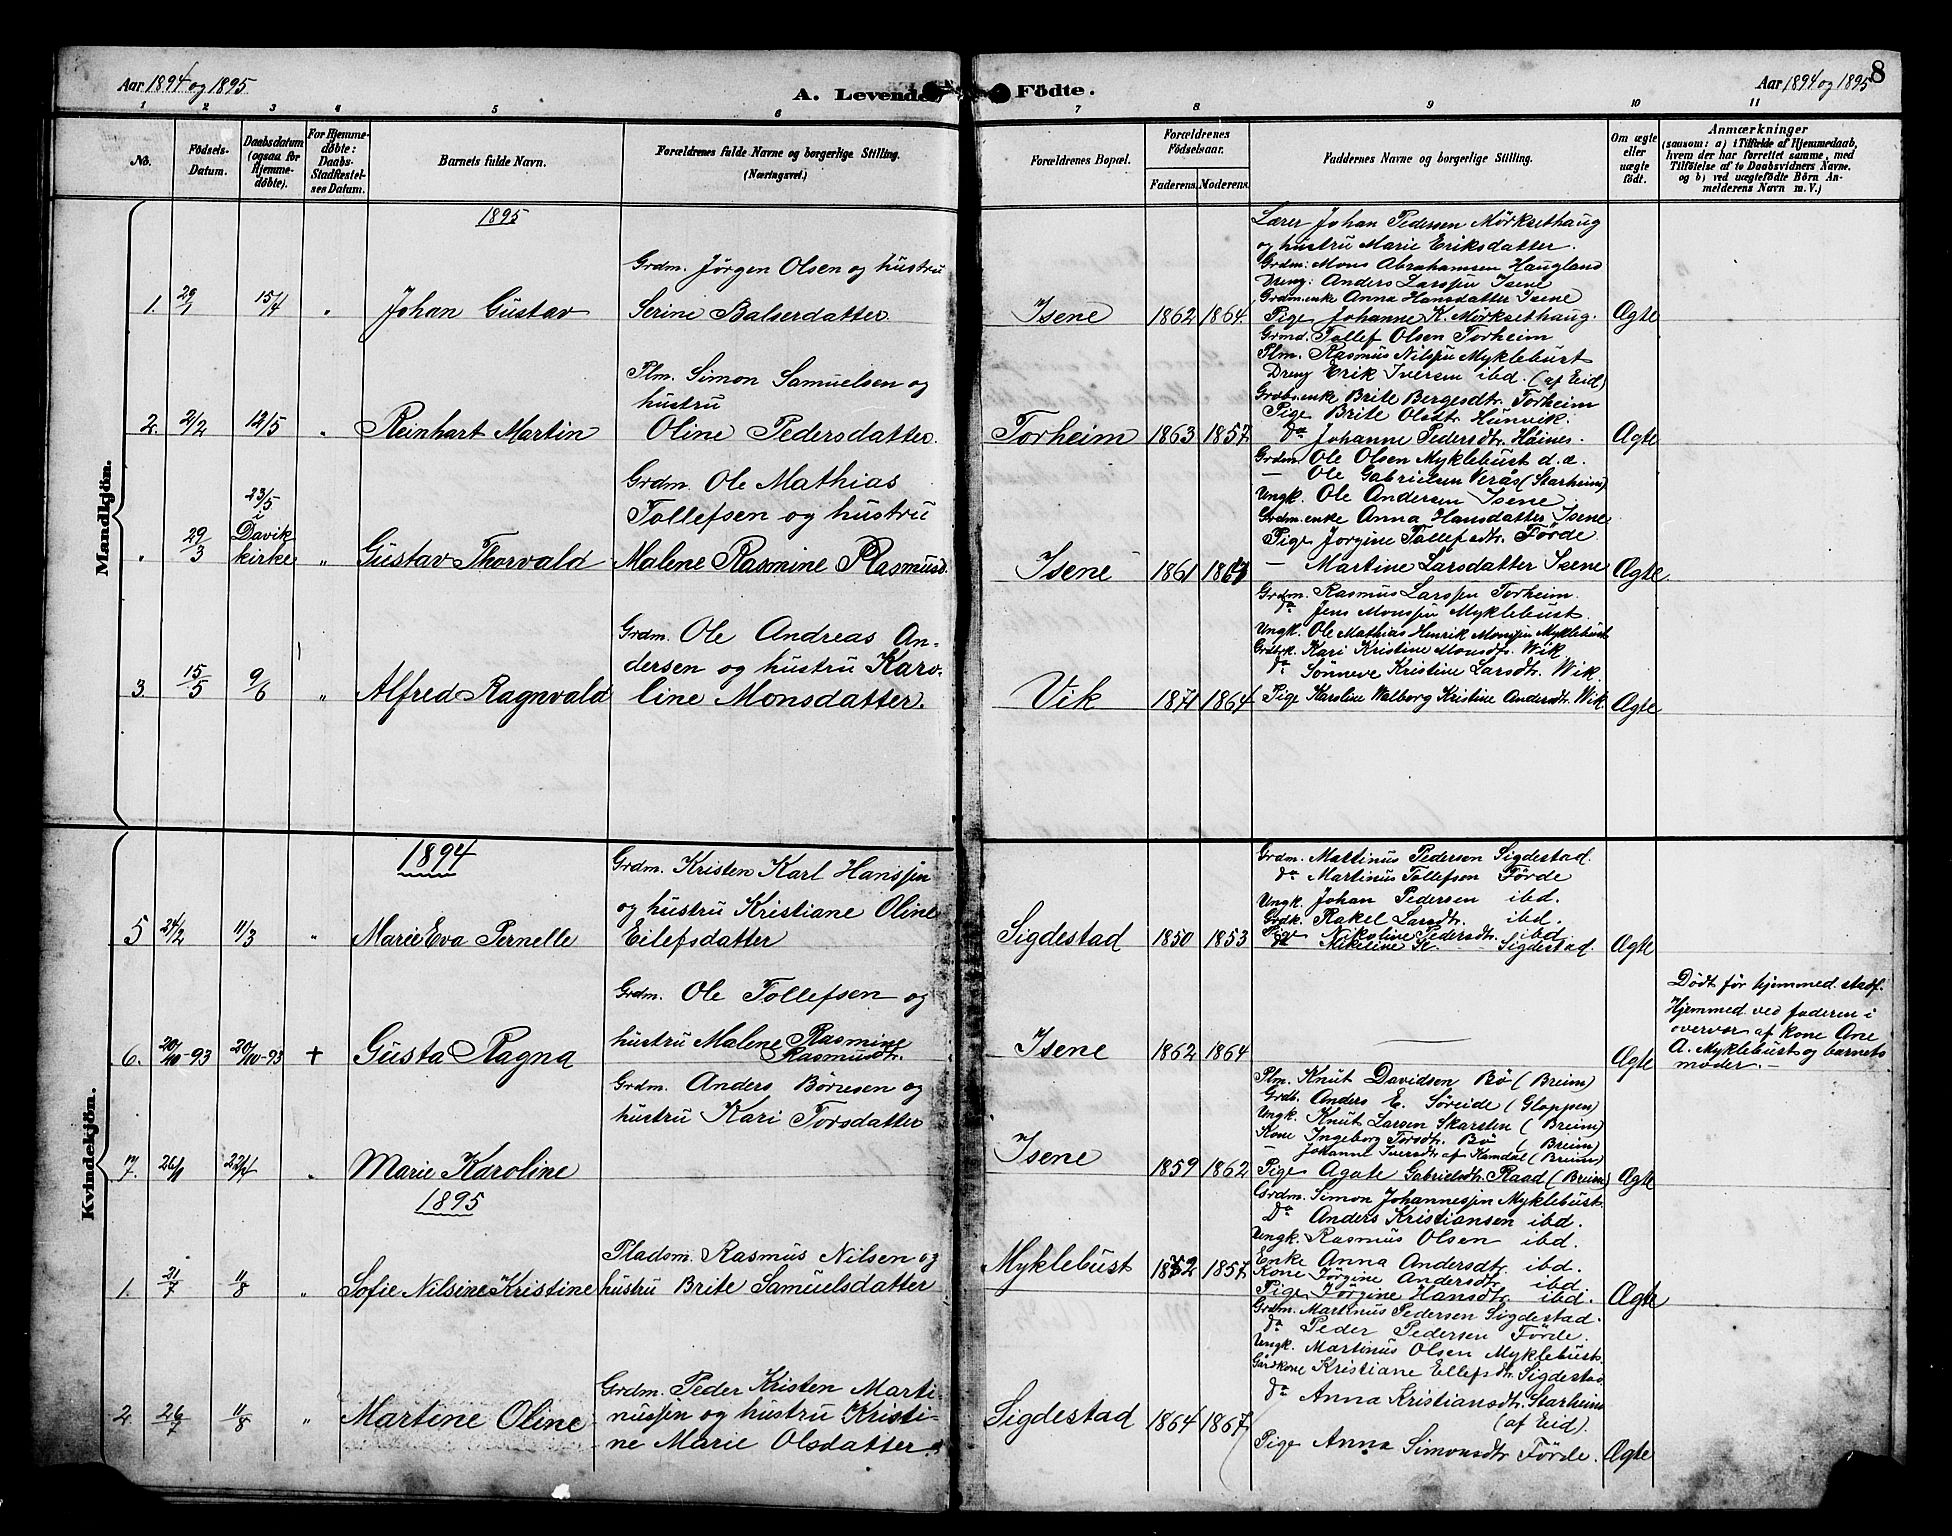 Aar 1894 og 1895
A. Levende Födte.
Aar 1894 og 1895
8
1 2 3 4 5 6 7 8 9 10 11
No.
Fødsels-Datum.
Daabsdatum (ogsaa for Hjemme-døbte).
For Hjemme-døbte: Daabs-Stadfæstel-ses Datum.
Barnets fulde Navn.
Forældrenes fulde Navne og borgerlige Stilling. (Næringsvei.)
Forældrenes Bopæl.
Forældrenes Fødselsaar.
Faderens. Moderens.
Faddernes Navne og borgerlige Stilling.
Om ægte eller uægte født.
Anmærkninger
(saasom: a) i Tilfælde af Hjemmedaab, hvem der har forrettet samme, med Tilføielse af to Daabsvidners Navne. og b) ved uægtefødte Börn An-melderens Navn m. V.)
Mandkjön.
1895
1. 29/1 15/4 "
Johan Gustav
Grdm. Jørgen Olsen og hustru
Serine Balserdatter
Isene 1862 1864
Lærer Johan Pedersen Mørksethaug
og hustru Marie Eriksdatter.
Grdm: Mons Abrahamsen Haugland
Dreng: Anders Larssen Isene
Grdm.enke Anna Hansdatter Isene
Pige Johanne K. Mørksethaug.
Ægte
2. 2/2 12/5 "
Reinhart Martin
Plm. Simon Samuelsen og
hustru
Oline Pedersdatter.
Torheim 1863 1857
Grmd. Tollef Olsen Torheim
Plm. Rasmus Nilssen Myklebust
Dreng Erik Iversen ibd. (af Eid)
Grdb.enke Brite Bergesdtr. Torheim
Pige Brite Olsdtr. Hunvik.
do Johanne Pedersdtr. Håines.
Ægte
" 29/3 23/5 i Davik kirke "
Gustav Thorvald
Grdm. Ole Mathias
Tollefsen og hustru
Malene Rasmine Rasmusd.
Isene 1861
Grdm. Ole Olsen Myklebust d.æ.
— Ole Gabrielsen Verås (Starheim)
Ungk. Ole Andersen Isene
Grdm.enke Anna Hansdatter Isene
Pige Jorgine Tollefsdtr. Förde
— Martine Larsdatter Isene
Ægte
3. 15/5 9/6 "
Alfred Ragnvald
Grdm. Ole Andreas An-
dersen og hustru Karo-
line Monsdatter.
Vik 1871 1864
Grdm. Rasmus Larssen Torheim.
do Jens Monssen Myklebust
Ungk. Ole Mathias Henrik Monssen Myklebust
Grdbrk. Kari Kristine Monsdtr. Wik
do Sönneve Kristine Larsdtr. Wik.
Pige Karoline Walborg Kristine Andersdtr. Wik
Ægte
Kvindekjön.
1894
5 24/2 11/3 "
Marie Eva Pernelle
Grdm. Kristen Karl Hanssen
og hustru Kristiane Oline
Eilefsdatter
Sigdestad 1850 1853
Grdm. Martinus Pedersen Sigdestad.
do Martinus Tollefsen Förde
Ungk. Johan Pedersen ibd.
Grdk. Rakel Larsdtr. ibd.
Pige Nikoline Pedersdtr. ibd.
Sigdestad.
Ægte
6. 20/10-93 20/10-93 +
Gusta Ragna
Grdm. Ole Tollefsen og
hustru Malene Rasmine
Rasmusdtr.
Isene 1862 1864
Ægte
Dødt før hjemmed. stadf.
Hjemmed. ved faderen i
overvær af kone Ane
A. Myklebust og barnets
moder. —
7.
Marie Karoline
Grdm. Anders Börresen og
hustru Kari Torsdatter
Isene 1859 1862
Plm. Knut Davidsen Bö (Breim)
Grdb. Anders E. Söreide (Gloppen)
Ungk. Knut Larsen Skarsten (Breim)
Kone Ingeborg Torsdtr. Bö (Breim)
— Johanne Iversdtr. af Kandal (Breim)
Pige Agate Gabrielsdtr. Raad (Breim)
Ægte
1895
1. 21/7 11/8 "
Sofie Nilsine Kristine
Pladsm. Rasmus Nilsen og
hustru Brite Samuelsdatter
Myklebust 1852 1857
Grdm. Simon Johannessen Myklebust.
Do Anders Kristiansen ibd.
Ungk. Rasmus Olsen ibd.
Enke Anna Andersdtr. ibd.
Kone Jörgine Andersdtr. ibd.
Pige Jörgine Hansdtr. ibd.
Ægte
2. 26/7 11/8 "
Martine Oline
Grdm. Peder Kristen Marti-
nussen og hustru Kristi-
ne Marie Olsdatter.
Sigdestad 1864 1867
Grdm. Martinus Pedersen Sigdestad.
do Peder Pedersen Förde.
Ungk. Martinus Olsen Myklebust.
Gårdkone Kristiane Ellefsdtr. Sigdestad
do Anna Kristiansdtr. Starheim
(af Eid).
Pige Anna Simonsdtr. Förde.
Ægte